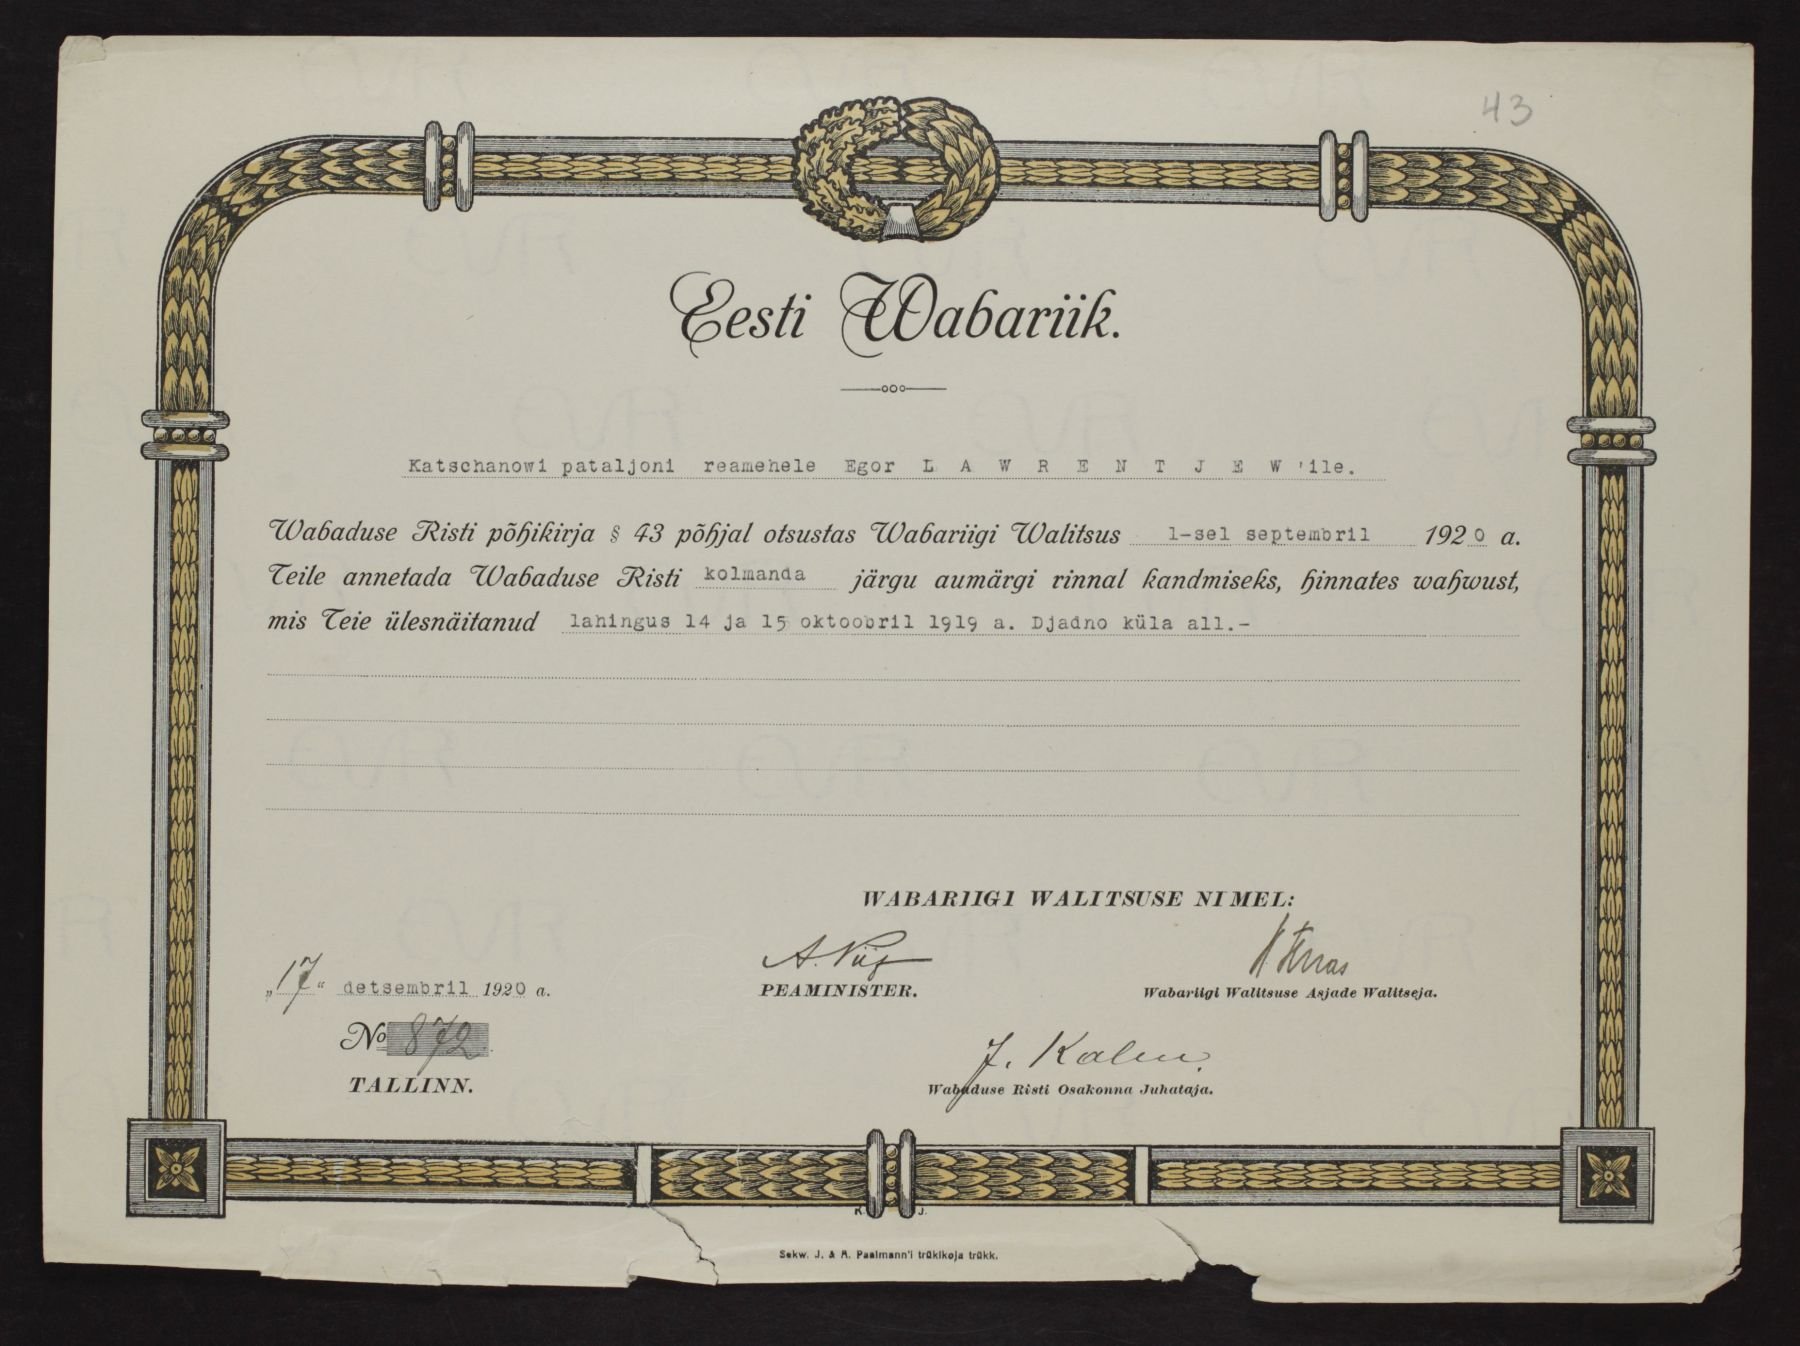 43
Eesti Wabariik.
Katschanowi pataljoni reamehele Egor L A W R E N T J E W 'ile.
Wabaduse Risti põhikirja § 43 põhjal otsustas Wabariigi Walitsus 1-sel septembril 1920 a.
Teile annetada Wabaduse Risti kolmanda järgu aumärgi rinnal kandmiseks, hinnates wahwust,
mis Teie ülesnäitanud lahingus 14 ja 15 oktoobril 1919 a. Djadno küla all.-
WABARIIGI WALITSUSE NIMEL:
A. Piip
PEAMINISTER.
Wabariigi Walitsuse Asjade Walitseja.
„17“ detsembril 1920 a.
No 872
TALLINN.
J. Kalm.
Wabaduse Risti Osakonna Juhataja.
K. J.
Sekw. J. & A. Paalmann'i trükikoja trükk.